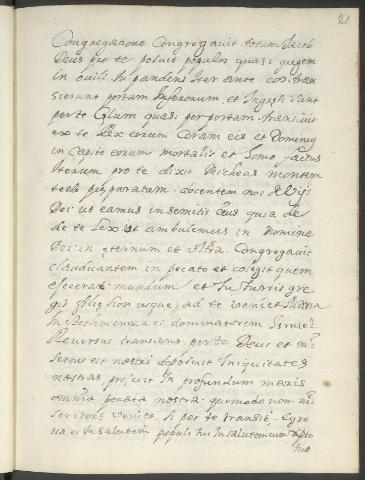 21
Congregatione Congregavit totum Jacob
Deus pro te posuit populos quasi gregem
in ovili tu pandens Iter ante eos tran
sierunt portam Infernum et Ingressi sunt
per te Celum quasi per portam transivit
ex te Rex eorum Coram eis et Dominus
in Capite eorum mortalis et homo factus
Iterum pro te dixit Micheas montem
preparatum docentem nos de Vijs
Dei ut eamus in semitis eius quia de
de te Lex ut ambulemus in nomine
Dei in eternum et ultra. Congregavit
claudicantem in pecato et colegit quem
ejecerat mundum et tu turris gre
gis filie Sion usque ad te veniet
In Betlem dominatorem Israel
Reversus transiens per te Deus et
est nostri deposuit Iniquitates
nostras projecit In profundum maris
omnia pecata nostra quomodo non
venice si per te transit. Egre
sus es In salutem populi tui In salutem cum
tuo